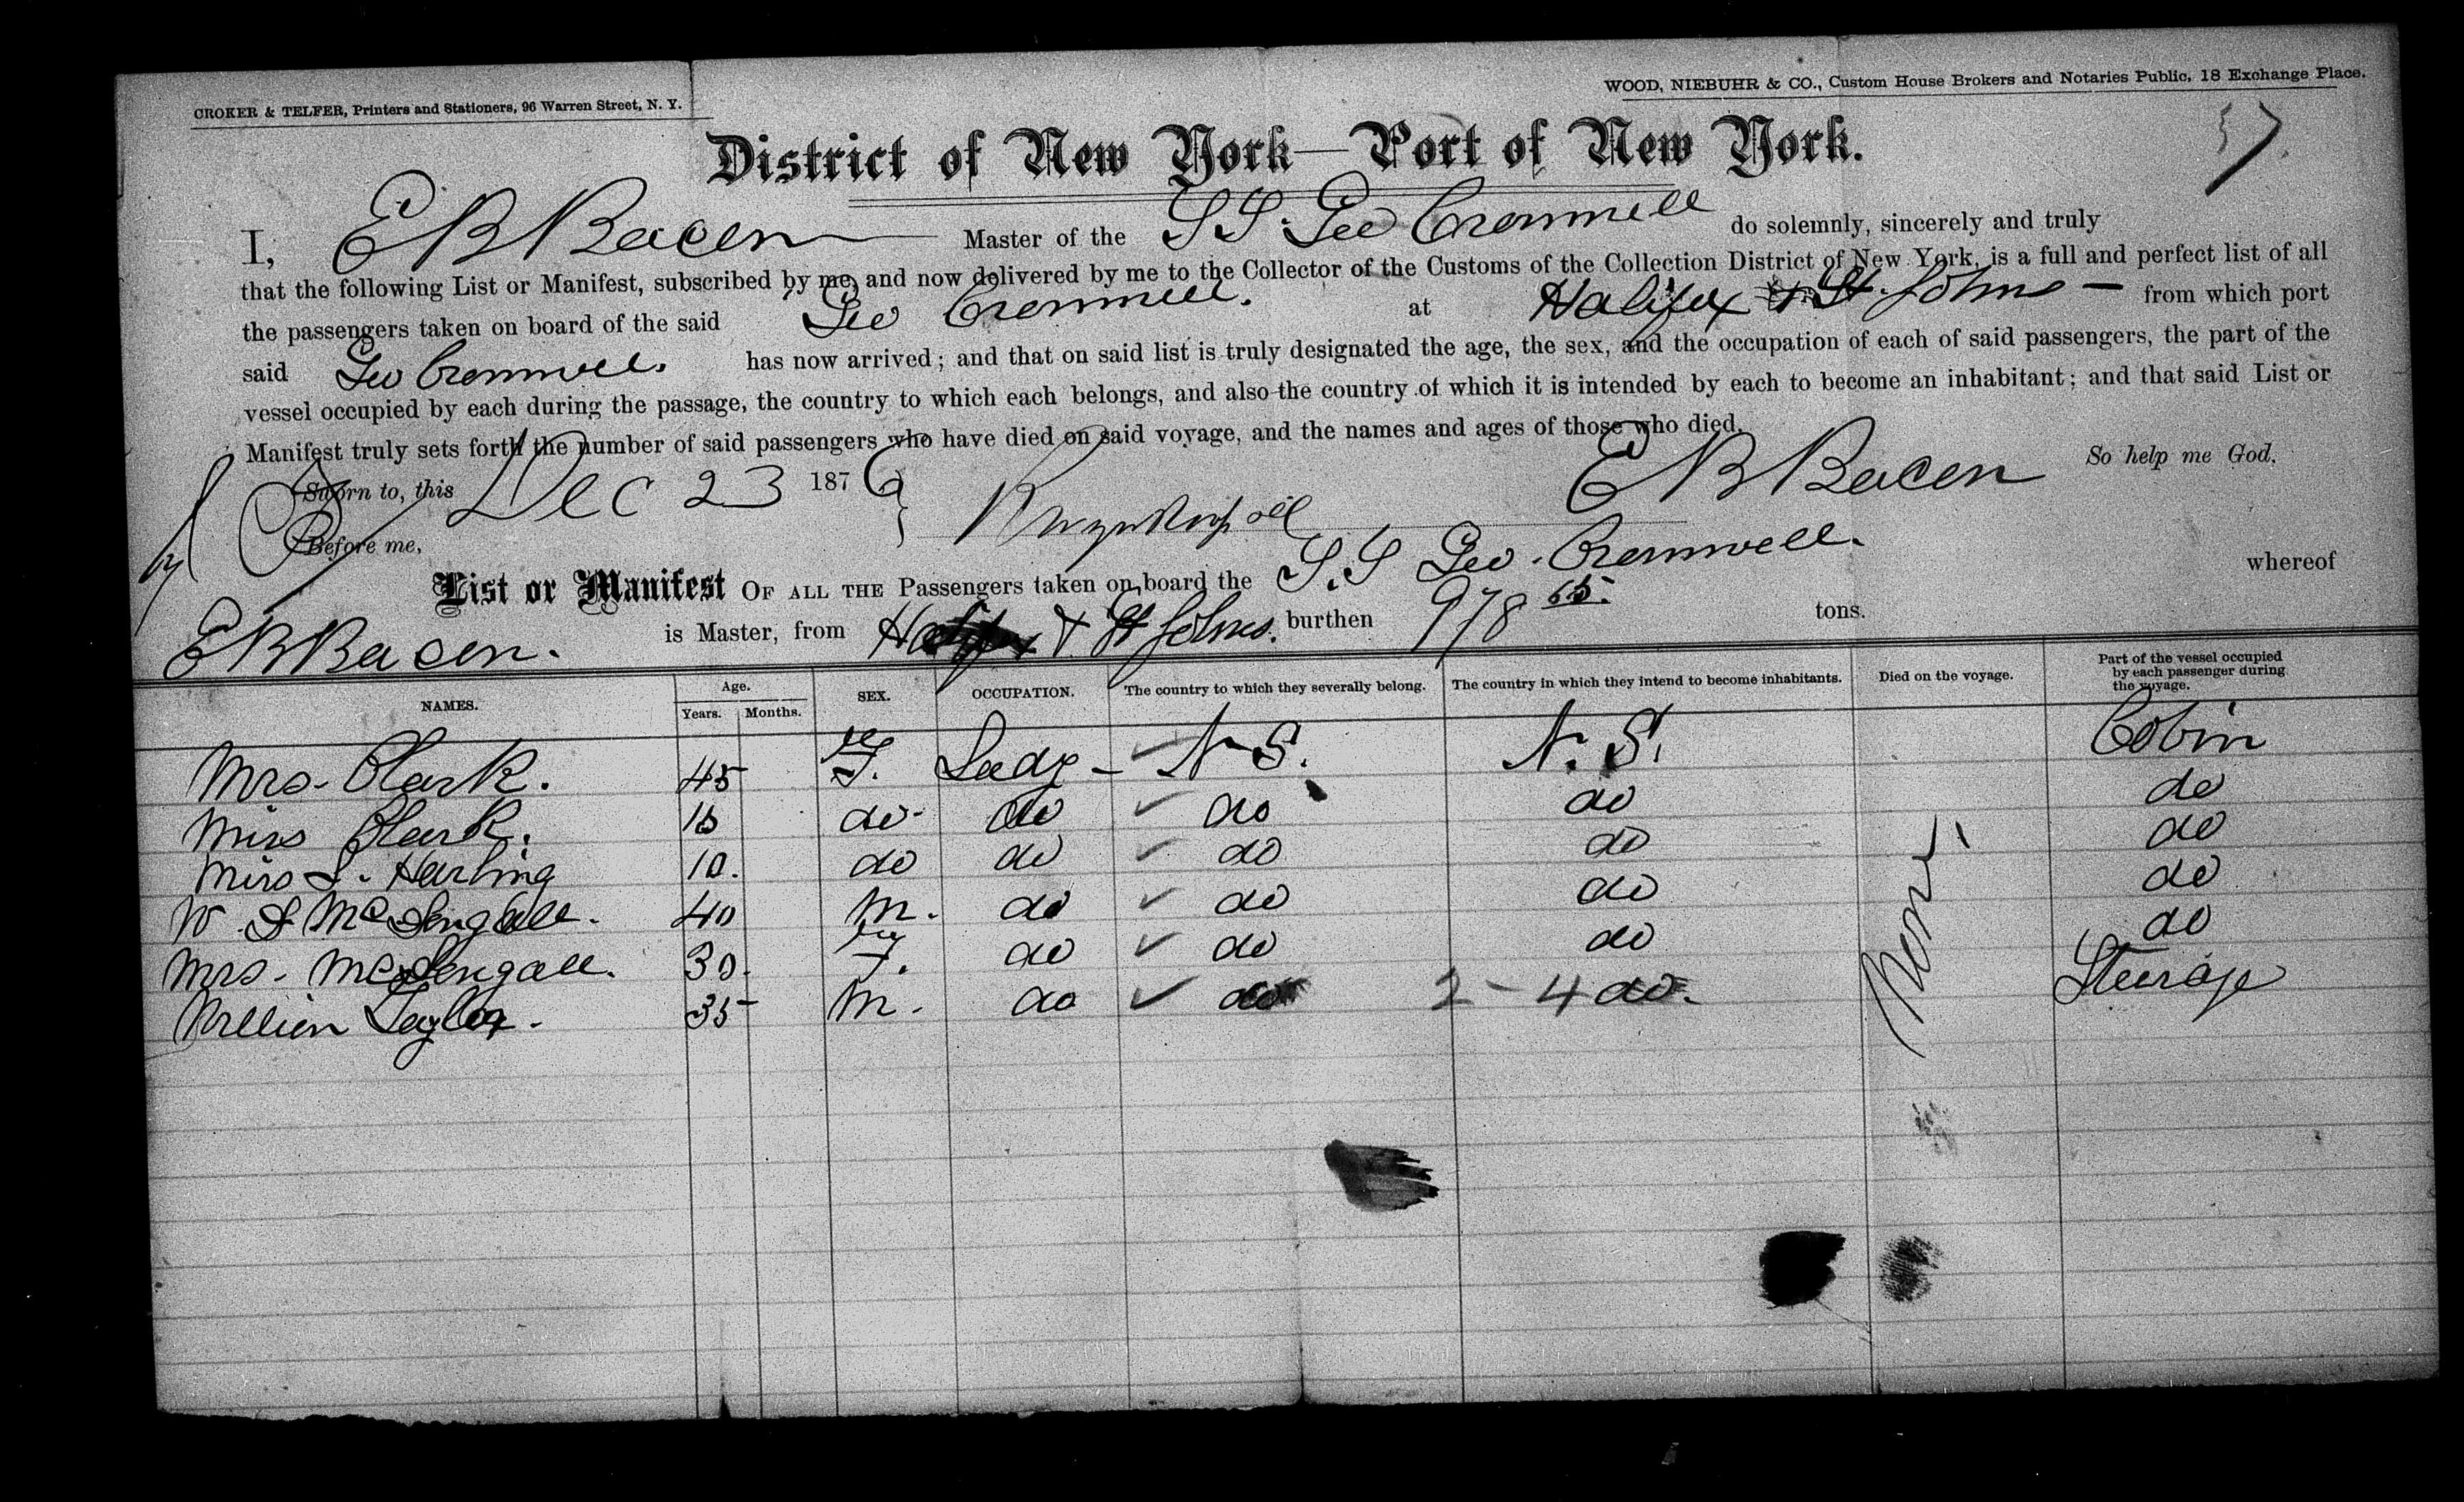 CROKER & TELFER, Printers and Stationers, 96 Warren Street, N. Y.
WOOD, NIEBUHR & CO., Custom House Brokers and Notaries Public, 18 Exchange Place.
57
District of New York—Port of New York.
I, E B Bacon Master of the SS Geo Cromwell do solemnly, sincerely and truly
that the following List or Manifest, subscribed by me, and now delivered by me to the Collector of the Customs of the Collection District of New York, is a full and perfect list of all
the passengers taken on board of the said Geo Cromwell. at Halifax & St. Johns — from which port
said Geo Cromwell. has now arrived; and that on said list is truly designated the age, the sex, and the occupation of each of said passengers, the part of the
vessel occupied by each during the passage, the country to which each belongs, and also the country of which it is intended by each to become an inhabitant; and that said List or
Manifest truly sets forth the number of said passengers who have died on said voyage, and the names and ages of those who died.
So help me God,
Sworn to, this Dec 23 1876 E B Bacon
Before me,
List or Manifest OF ALL THE Passengers taken on board the S.S Geo. Cromwell. whereof
E B Bacon. is Master, from Halifax & St Johns. burthen 978 65. tons.
NAMES. Age. Years. Months. SEX. OCCUPATION. The country to which they severally belong. The country in which they intend to become inhabitants. Died on the voyage. Part of the vessel occupied by each passenger during the voyage.
Mrs. Clark. 45 F. Lady - N S. N. S. Cabin
Miss Clark. 16 do. do do do do
Miss Harling 10. do do do do do
W 40 M. do do do do
Mrs. 30. F. do do do do
Taylor. 35 M. do do 2 - 4 do. Steerage
None